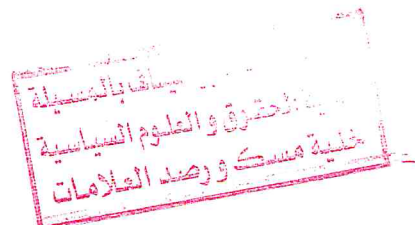 بالمسيلة
الحقوق و العلوم السياسية
خلية مسك و رصد العلامات